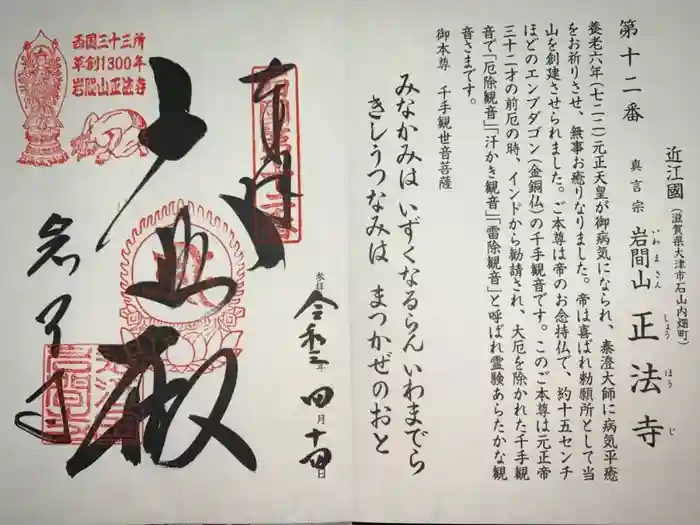 第十二番
近江國（滋賀県大津市石山内畑町）
真言宗 岩間山 正法寺
いわまさん しょうほうじ
養老六年（七二二）元正天皇が御病気になられ、泰澄大師に病気平癒
をお祈りさせ、無事お癒りなりました。帝は喜ばれ勅願所として当
山を創建させられました。ご本尊は帝のお念持仏で、約十五センチ
ほどのエンブダゴン（金銅仏）の千手観音です。このご本尊は元正帝
三十二才の前厄の時、インドから勧請され、大厄を除かれた千手観
音で「厄除観音」「汗かき観音」「雷除観音」と呼ばれ霊験あらたかな観
音さまです。
御本尊 千手観世音菩薩
みなかみは いずくなるらん いわまでら
きしうつなみは まつかぜのおと
奉拝
参拝 令和三年 四月十四日
大悲殿
岩間寺
西国三十三所
草創1300年
岩間山正法寺